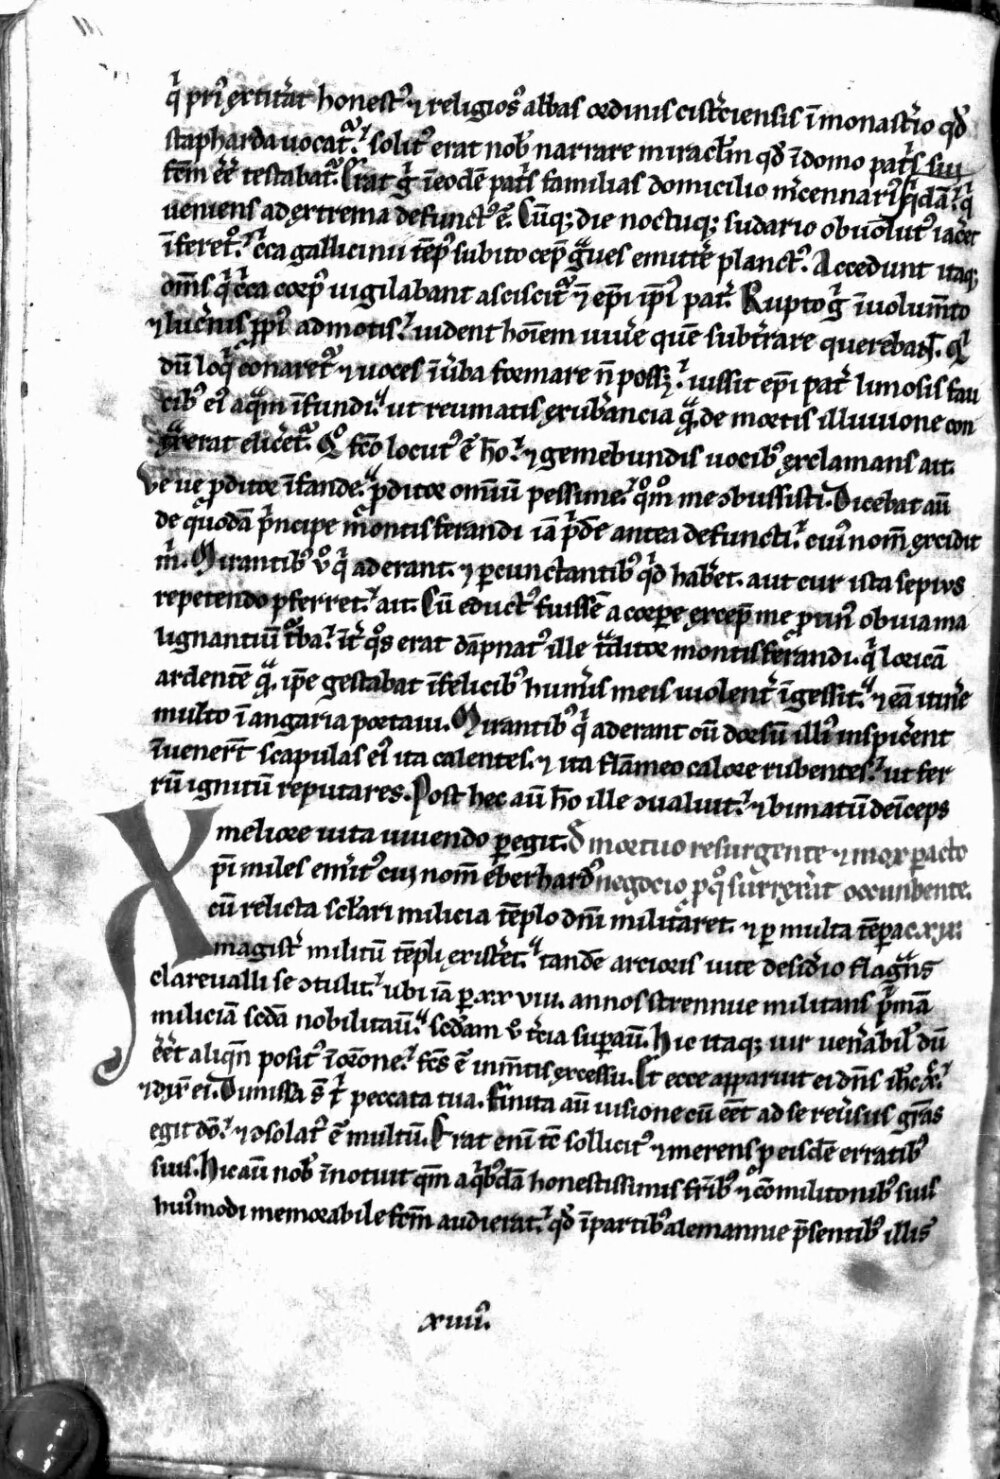 q̇ pri᷒ extitẽat honest᷒ ⁊ religios᷒ abbas ordinis cist̃ciensis ĩ monast̃io qđ
stapharda uocat᷑. solit᷒ erat nob̃ narrare miraclm̃ qđ ĩ domo pat̃s sui
fc̃m ẽẽ testabat᷑. Erat ḡ ĩ eodẽ pat̃s familias domicilio m̃cennari᷒ q̇dã. q̇
ueniens ad extrema defunct᷒ ẽ. Cũq; die noctuq; sudario obuolut᷒ iac̃et
ĩ feret᷒. c̃ca gallicinii tẽp᷒ subito cep̃ g̃ues emitt̃e planct᷒. Accedunt itaq;
om̃s q̇ c̃ca corp᷒ uigilabant asciscit᷑ ⁊ ep̃i ip̃i᷒ pat̃. Rupto ḡ ĩuolum̃to
⁊ luc̃nis ꝓpi᷒ admotis. uident hoĩem uiu̾e quẽ subt̃rare querebant. Q
dũ loq̇ conaret᷑ ⁊ uoces ĩ ũba formare ñ poss;. iussit ep̃i pat̃ limosis fau
cib᷒ ei᷒ aq̃m ĩfundi. ut reumatis exub̾ancia q̃ de mortis illuuione con
g̃xerat elic̾et᷑. Q fc̃o locut᷒ ẽ hõ. ⁊ gemebundis uocib᷒ exclamans ait.
Ve ue ꝓditor ĩfande. ꝓditor omĩũ pessime. qm̊ me ɔbussisti. Dicebat aũ
de quodã p̃ncipe montisferandi iã p̃dẽ antea defuncti. cui᷒ nom̃ excidit
m̃. Mirantib᷒ v̊ q̇ aderant. ⁊ ꝑcunctantib᷒ qđ hab̾et. aut cur ista sepius
repetendo ꝓferret. ait. Cũ educt᷒ fuissẽ a corpore excep̃ me ꝓtin᷒ obuia ma
lignantiũ t̾ba. ĩt̃ q̊s erat dãpnat᷒ ille t̃ditor montisferandi. q̇ loricã
ardentẽ q̃ ip̃e gestabat ĩfelicib᷒ hum̾is meis uiolent̃ ĩgessit. ⁊ eã itin̾e
multo ĩ angaria portaui. Mirantib᷒ q̇ aderant cũ dorsũ illi᷒ inspic̾ent
ĩuener̃t scapulas ei᷒ ita calentes. ⁊ ita flãmeo calore rubentes. ut fer
rũ ignitũ reputares. Post hec aũ hõ ille ɔualuit. ⁊ bimatũ deĩceps
meliore uita uiuendo ꝑegit. D mortuo resurgente ⁊ mox ꝑacto
X pi miles em̾it᷒ cui᷒ nom̃ eberhard᷒ negocio ꝓ q̊ surrex̾at occunbente.
cũ relicta sc̃lari milicia tẽplo dnĩ militaret. ⁊ ꝑ multa tẽpa c.xix.
magist̃ militũ tẽpli exist̾et. tandẽ arcioris uite desid̾io flag̃ns
clareualli se ɔtulit. ubi iã ꝑ xx viii. annos strennue militans p̃mã
miliciã sedã nobilitaũ. sedam v̊ t̾cia suꝑaũ. Hic itaq; uir uen̾abil᷒ dũ
ẽẽt aliqñ posit᷒ ĩ orõne. fc̃s ẽ in m̃tis excessu. Et ecce apparuit ei dñs ihc̃ xp̃c.
⁊ dix̃ ei. Dimissa s̃ t̃ peccata tua. Finita aũ uisione cũ ẽẽt ad se reũsus gr̃as
egit dõ. ⁊ ɔsolat᷒ ẽ multũ. Erat enĩ tc̃ sollicit᷒ ⁊ merens ꝓ eisdẽ erratib᷒
suis. Hic aũ nob̃ ĩnotuit qm̃ a q̇b᷒dã honestissimis fr̃ib᷒ ⁊ cõmilitonib᷒ suis
hui᷒modi memorabile fc̃m audierat. qđ ĩ partib᷒ alemannie p̃sentib᷒ illis
xiiii᷒.